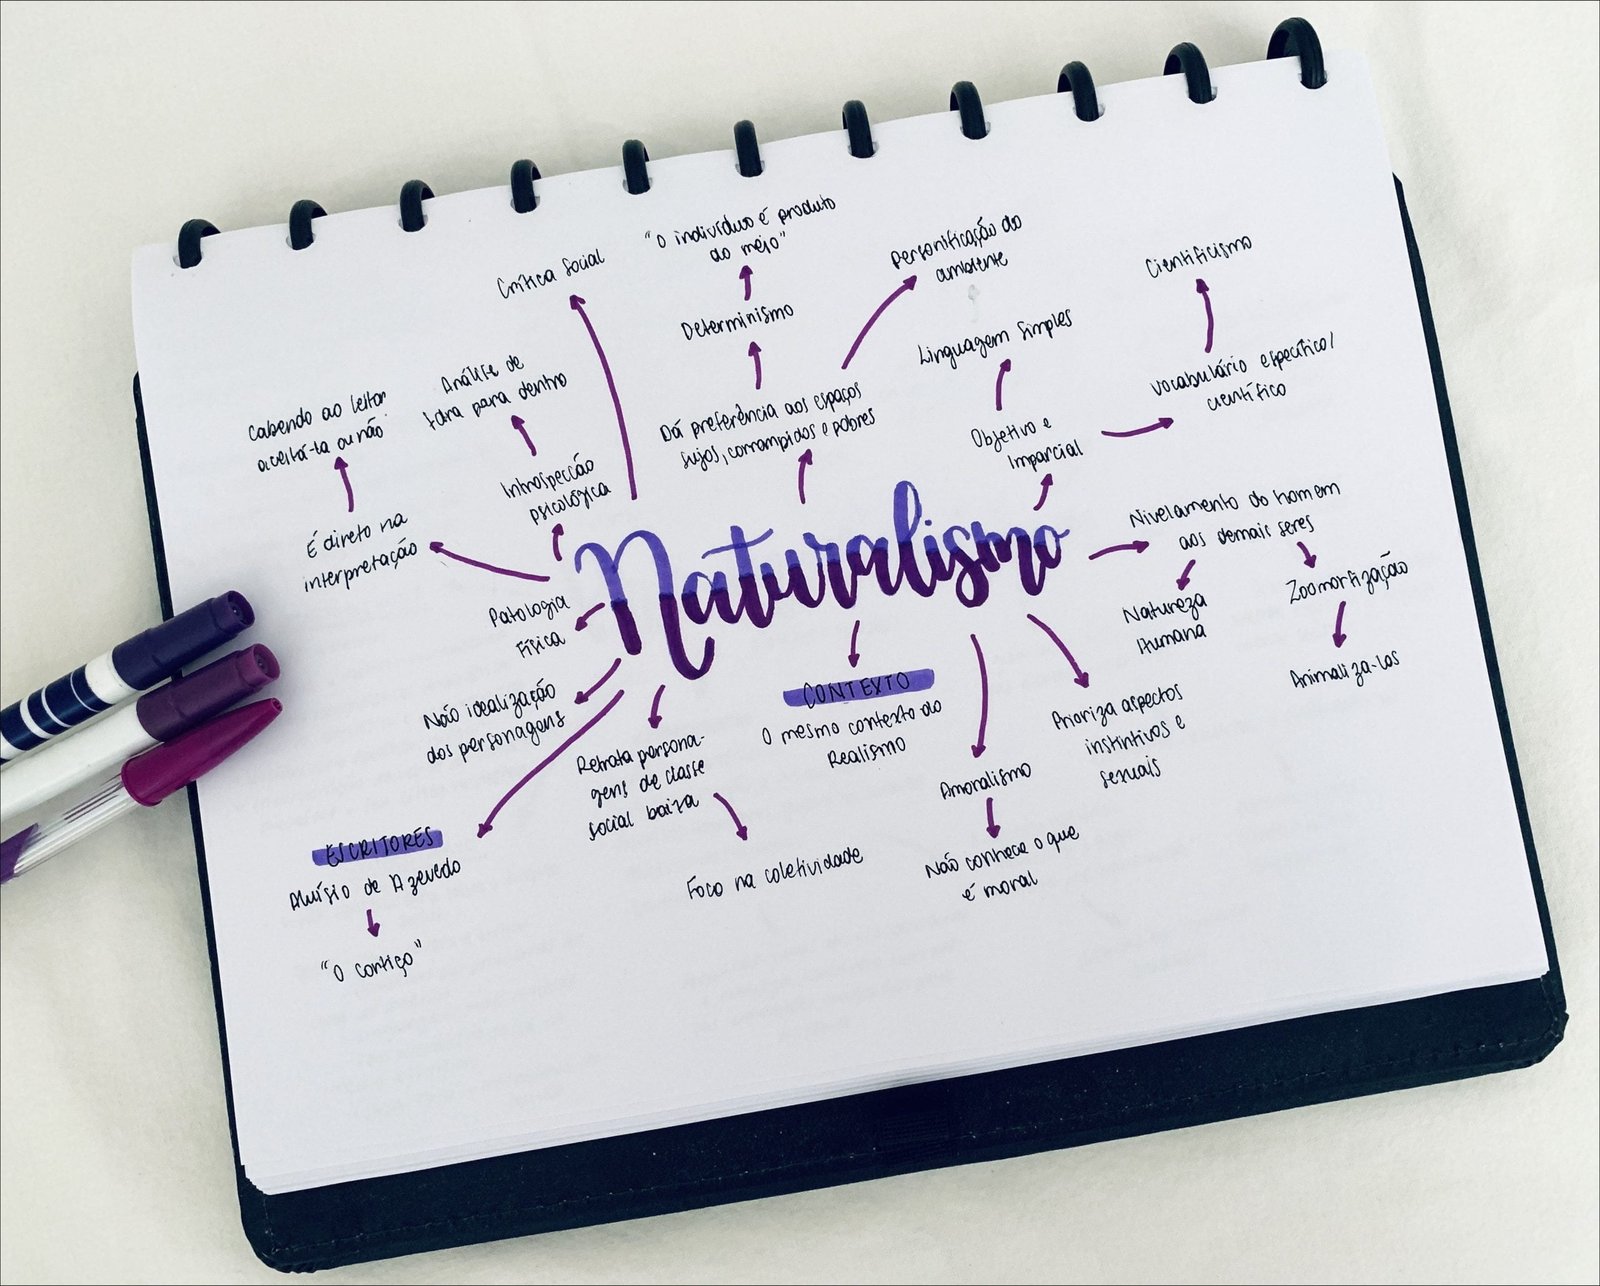 "O indivíduo é produto
do meio"
Crítica Social
Personificação do
ambiente
Cientificismo
Determinismo
Linguagem Simples
Análise de
fora para dentro
Cabendo ao leitor
aceitá-la ou não
Dá preferência aos espaços
sujos, corrompidos e pobres
Vocabulário específico/
científico
Objetivo e
Imparcial
Introspecção
psicológica
É direto na
interpretação
Nivelamento do homem
aos demais seres
Naturalismo
Patologia
Física
Natureza
Humana
Zoomorfização
Animaliza-los
Não idealização
dos personagens
CONTEXTO
O mesmo contexto do
Realismo
Prioriza aspectos
instintivos e
sexuais
Retrata persona-
gens de classe
social baixa
Amoralismo
ESCRITORES
Aluísio de Azevedo
Foco na coletividade
Não conhece o que
é moral
"O cortiço"